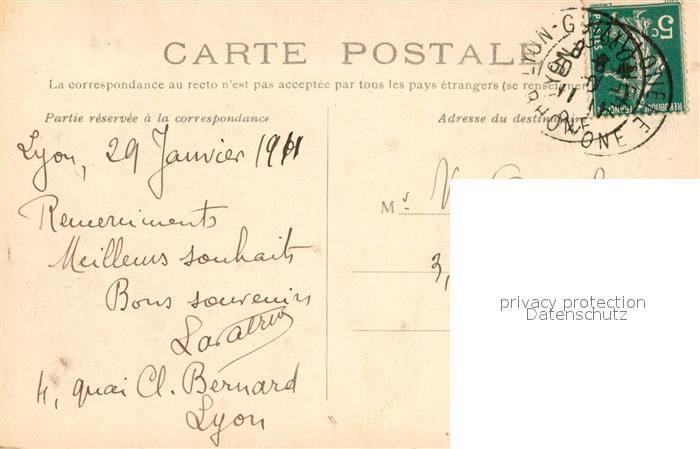 CARTE POSTALE
La correspondance au recto n'est pas acceptée par tous les pays étrangers (se renseigner
Partie réservée à la correspondance
Adresse du destinataire
Lyon, 29 Janvier 1911
Remerciments
Meilleurs souhaits
Bons souvenirs
4, quai Cl. Bernard
Lyon
M
3,
5c
LYON-GUILLOTIÈRE
RHONE
privacy protection
Datenschutz